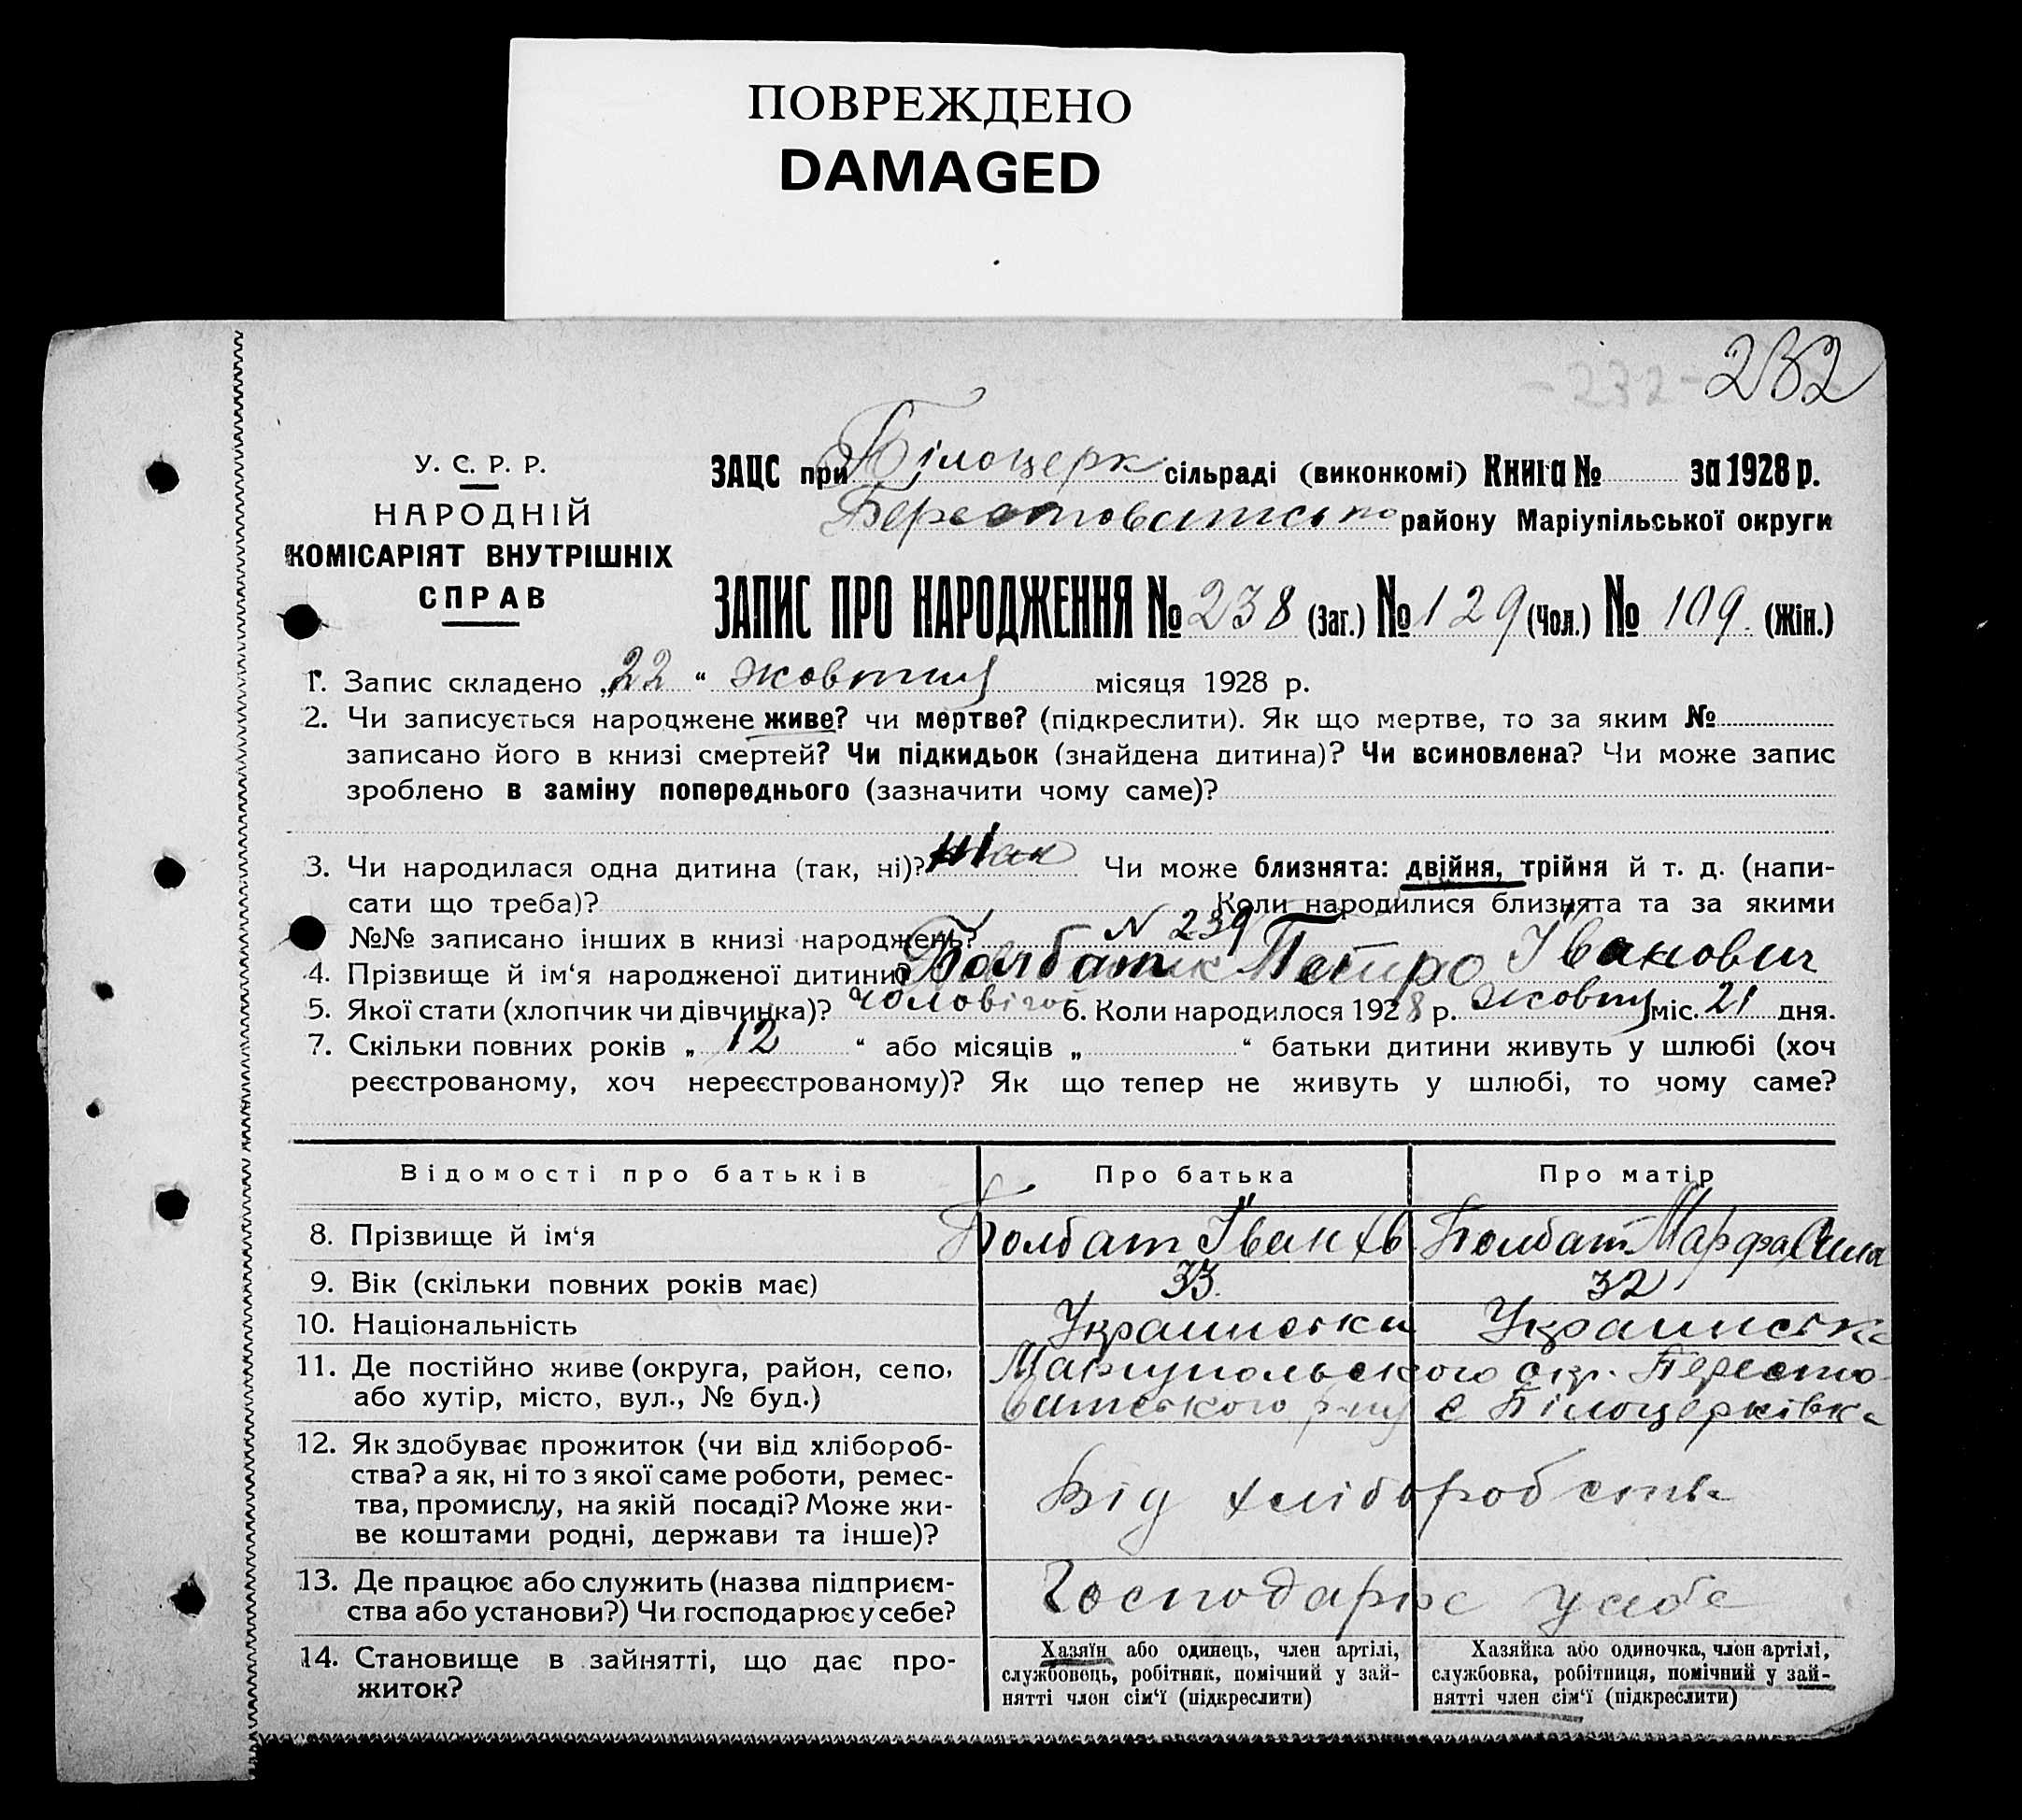 ПОВРЕЖДЕНО
DAMAGED
232
- 232 -
У. С. Р. Р.
НАРОДНІЙ
КОМІСАРІЯТ ВНУТРІШНІХ
СПРАВ
ЗАЦС при Білоцерк сільраді (виконкомі) Книга № за 1928 р.
району Маріупільської округи
ЗАПИС ПРО НАРОДЖЕННЯ № 238 (Заг.) № 129 (Чол.) № 109. (Жін.)
1. Запис складено „22“ жовтня місяця 1928 р.
2. Чи записується народжене живе? чи мертве? (підкреслити). Як що мертве, то за яким №
записано його в книзі смертей? Чи підкидьок (знайдена дитина)? Чи всиновлена? Чи може запис
зроблено в заміну попереднього (зазначити чому саме)?
3. Чи народилася одна дитина (так, ні)? ні Чи може близнята: двійня, трійня й т. д. (напи-
сати що треба)? Коли народилися близнята та за якими
№№ записано інших в книзі народжень? N 239
4. Прізвище й ім‘я народженої дитини? Болбат Петро Іванович
5. Якої стати (хлопчик чи дівчинка)? чоловічої 6. Коли народилося 1928 р. жовтня міс. 21 дня.
7. Скільки повних років „12“ або місяців „ “ батьки дитини живуть у шлюбі (хоч
реєстрованому, хоч нереєстрованому)? Як що тепер не живуть у шлюбі, то чому саме?
Відомості про батьків Про батька Про матір
8. Прізвище й ім‘я Болбат Іван Болбат Марфа
9. Вік (скільки повних років має) 33. 32
10. Національність Украинська Украинська
11. Де постійно живе (округа, район, село, Мариупольского окр. Бересто
або хутір, місто, вул., № буд.) ватського р-ну с Білоцерківка
12. Як здобуває прожиток (чи від хлібороб-
ства? а як, ні то з якої саме роботи, ремес-
тва, промислу, на якій посаді? Може жи-
ве коштами родні, держави та інше)?
Від хліборобства
13. Де працює або служить (назва підприєм-
ства або установи?) Чи господарює у себе?
Господарює у себе
14. Становище в зайнятті, що дає про-
житок?
Хазяїн або одинець, член артілі,
службовець, робітник, помічний у зай-
нятті член сім‘ї (підкреслити)
Хазяйка або одиночка, член артілі,
службовка, робітниця, помічний у зай-
нятті член сім‘ї (підкреслити)